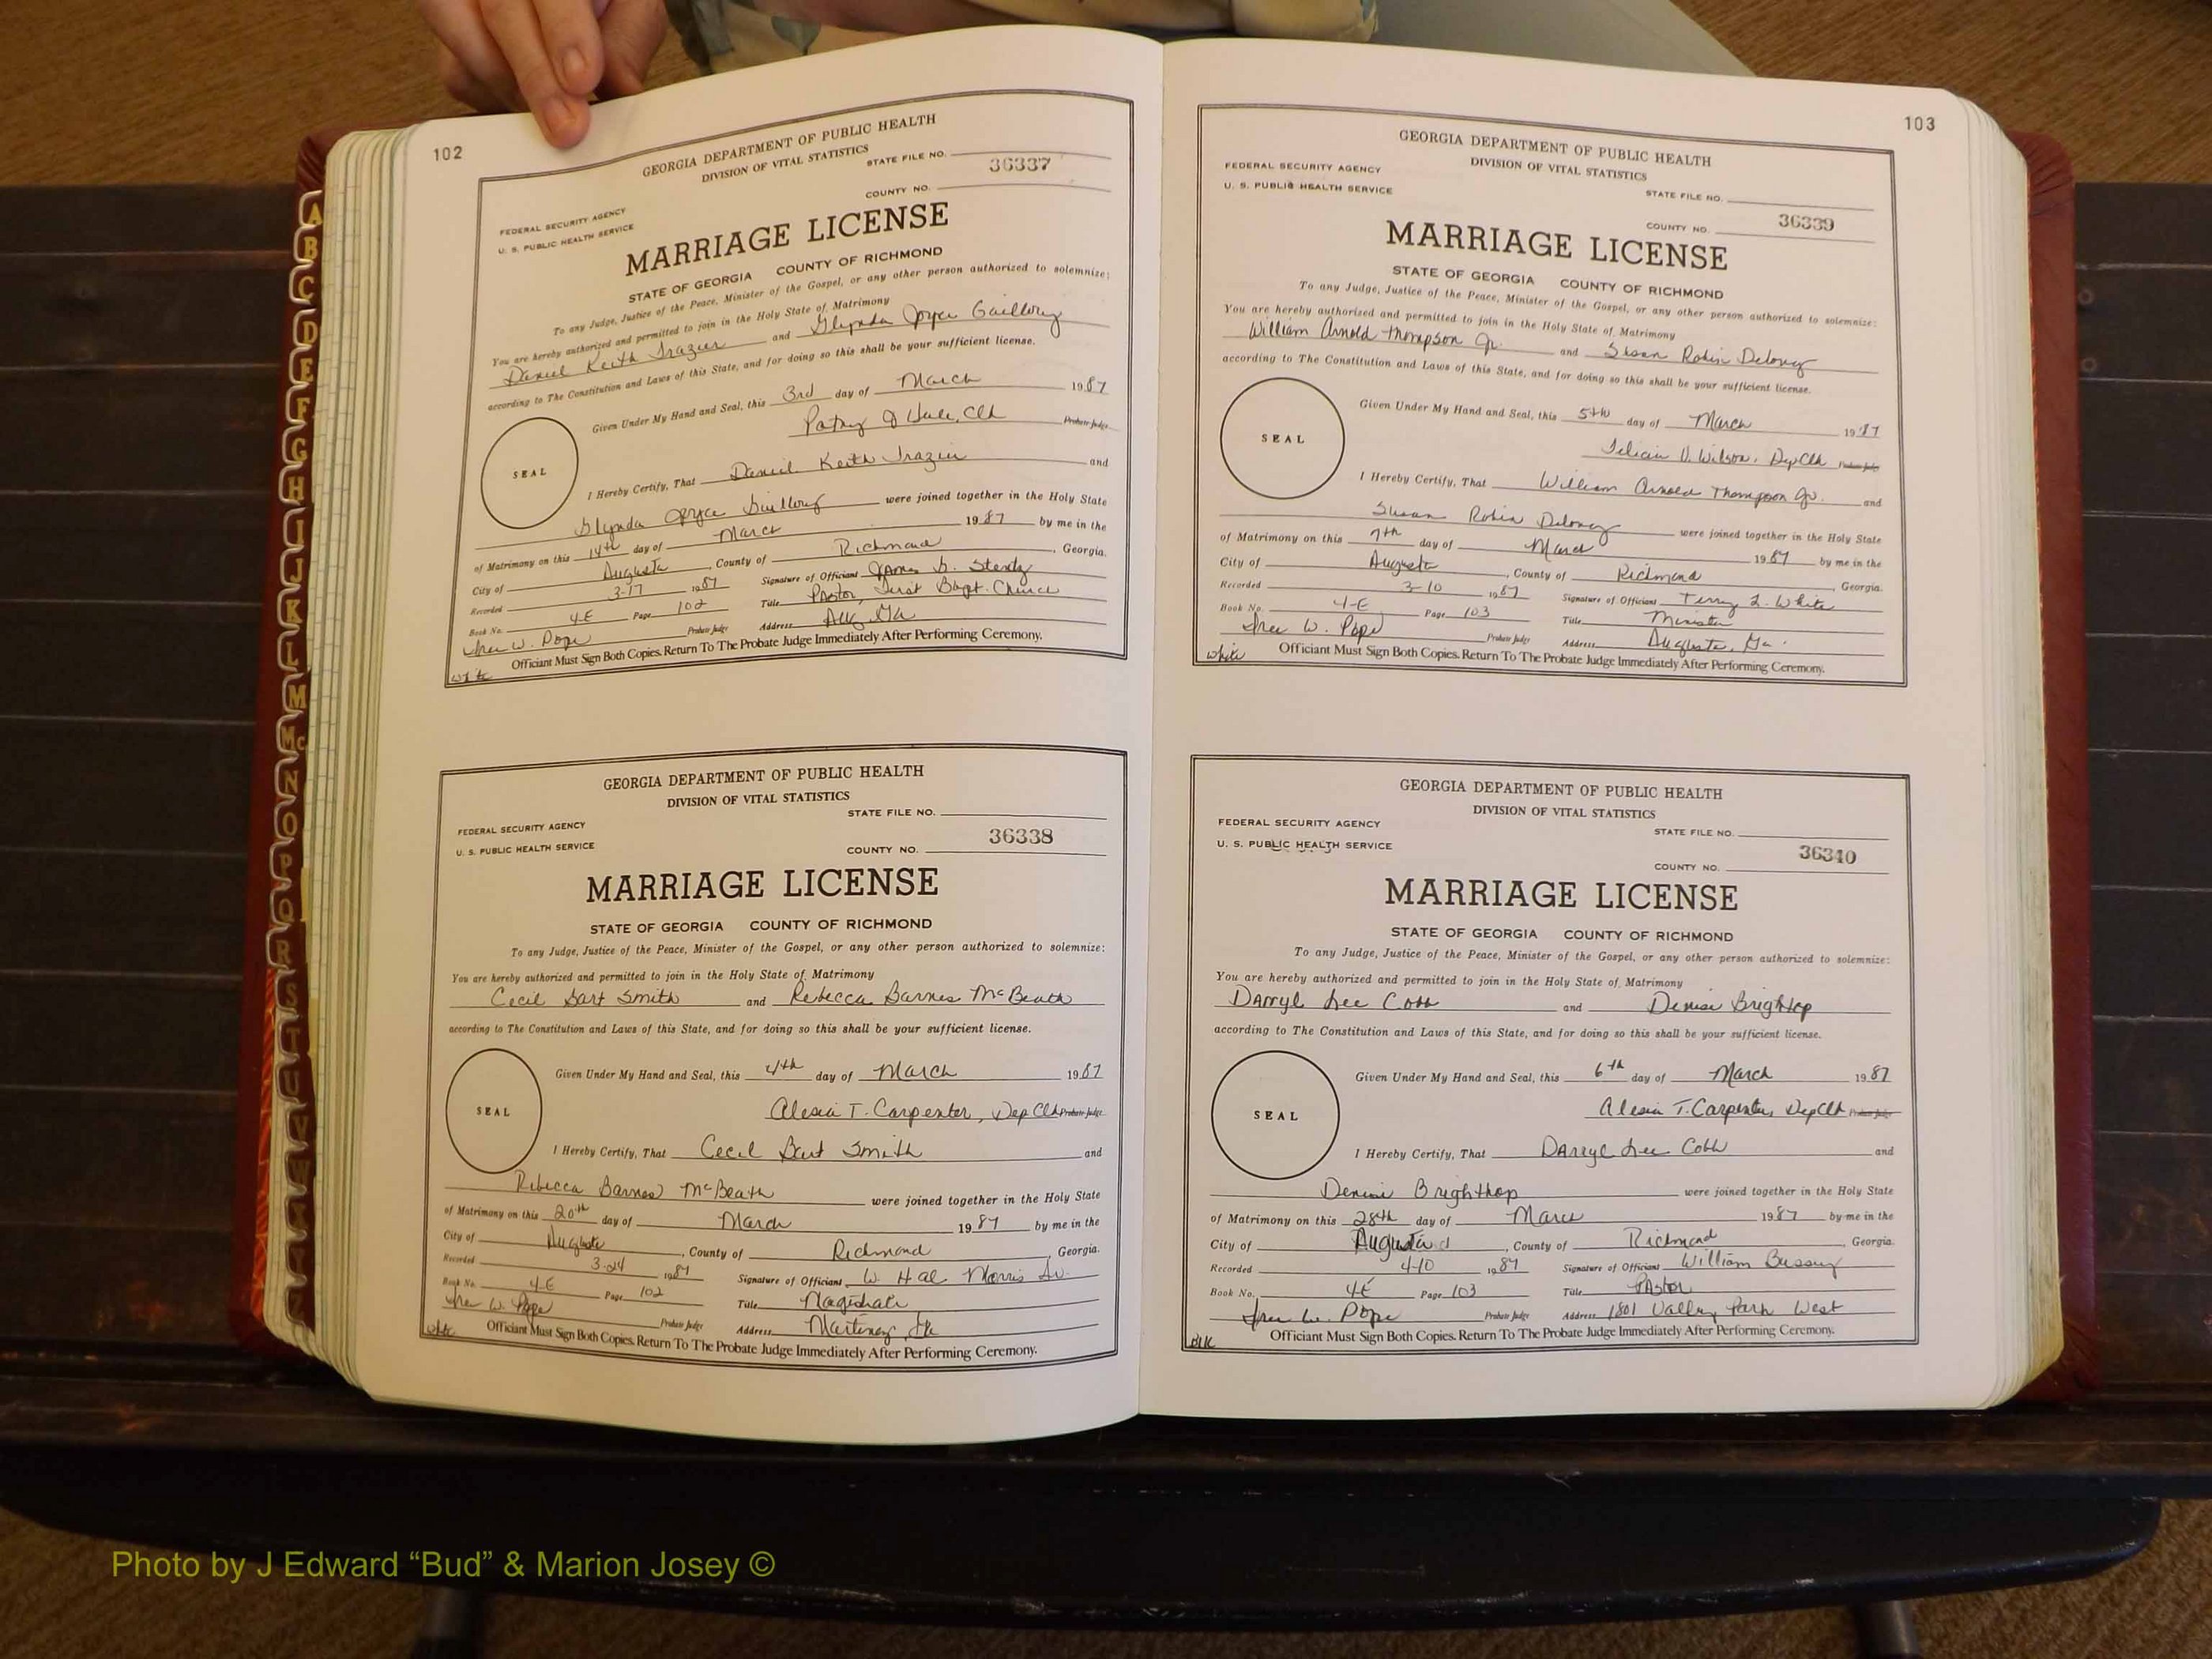 102
GEORGIA DEPARTMENT OF PUBLIC HEALTH
DIVISION OF VITAL STATISTICS
STATE FILE NO.
36337
COUNTY NO.
FEDERAL SECURITY AGENCY
U. S. PUBLIC HEALTH SERVICE
MARRIAGE LICENSE
STATE OF GEORGIA COUNTY OF RICHMOND
To any Judge, Justice of the Peace, Minister of the Gospel, or any other person authorized to solemnize:
You are hereby authorized and permitted to join in the Holy State of Matrimony
Daniel Keith Frazier and Glynda Joyce Guillory
according to The Constitution and Laws of this State, and for doing so this shall be your sufficient license.
Given Under My Hand and Seal, this 3rd day of March 1987
Clk Probate Judge
SEAL
I Hereby Certify, That Daniel Keith Frazier and
Glynda Joyce Guillory were joined together in the Holy State
of Matrimony on this 14th day of March 1987 by me in the
City of Augusta, County of Richmond, Georgia.
Recorded 3-17 1987 Signature of Officiant
Book No. 4-E Page 102 Title Pastor, First Bapt. Church
W. Pope Probate Judge Address Aug, Ga
Officiant Must Sign Both Copies. Return To The Probate Judge Immediately After Performing Ceremony.
white
GEORGIA DEPARTMENT OF PUBLIC HEALTH
DIVISION OF VITAL STATISTICS
STATE FILE NO.
FEDERAL SECURITY AGENCY
36338
U. S. PUBLIC HEALTH SERVICE
COUNTY NO.
MARRIAGE LICENSE
STATE OF GEORGIA COUNTY OF RICHMOND
To any Judge, Justice of the Peace, Minister of the Gospel, or any other person authorized to solemnize:
You are hereby authorized and permitted to join in the Holy State of Matrimony
Cecil Bart Smith and Rebecca Barnes McBeath
according to The Constitution and Laws of this State, and for doing so this shall be your sufficient license.
Given Under My Hand and Seal, this 4th day of March 1987
Alesia T. Carpenter, Dep Clk Probate Judge
SEAL
I Hereby Certify, That Cecil Bart Smith and
Rebecca Barnes McBeath were joined together in the Holy State
of Matrimony on this 20th day of March 1987 by me in the
City of Augusta, County of Richmond, Georgia.
Recorded 3-24 1987 Signature of Officiant W. Hal Morris
Book No. 4-E Page 102 Title Magistrate
W. Pope Probate Judge Address Martinez, Ga
white Officiant Must Sign Both Copies. Return To The Probate Judge Immediately After Performing Ceremony.
103
GEORGIA DEPARTMENT OF PUBLIC HEALTH
DIVISION OF VITAL STATISTICS
FEDERAL SECURITY AGENCY
U. S. PUBLIC HEALTH SERVICE
STATE FILE NO.
36339
COUNTY NO.
MARRIAGE LICENSE
STATE OF GEORGIA COUNTY OF RICHMOND
To any Judge, Justice of the Peace, Minister of the Gospel, or any other person authorized to solemnize:
You are hereby authorized and permitted to join in the Holy State of Matrimony
William Arnold Thompson Jr. and Susan Robin Deloney
according to The Constitution and Laws of this State, and for doing so this shall be your sufficient license.
Given Under My Hand and Seal, this 5th day of March 1987
Felicia V. Wilson, Dep Clk Probate Judge
SEAL
I Hereby Certify, That William Arnold Thompson Jr. and
Susan Robin Deloney were joined together in the Holy State
of Matrimony on this 7th day of March 1987 by me in the
City of Augusta, County of Richmond, Georgia.
Recorded 3-10 1987 Signature of Officiant Terry L. White
Book No. 4-E Page 103 Title Minister
W. Pope Probate Judge Address Augusta, Ga.
white Officiant Must Sign Both Copies. Return To The Probate Judge Immediately After Performing Ceremony.
GEORGIA DEPARTMENT OF PUBLIC HEALTH
DIVISION OF VITAL STATISTICS
FEDERAL SECURITY AGENCY
STATE FILE NO.
U. S. PUBLIC HEALTH SERVICE
36340
COUNTY NO.
MARRIAGE LICENSE
STATE OF GEORGIA COUNTY OF RICHMOND
To any Judge, Justice of the Peace, Minister of the Gospel, or any other person authorized to solemnize:
You are hereby authorized and permitted to join in the Holy State of Matrimony
Darryl Lee Cobb and Denise Brighthop
according to The Constitution and Laws of this State, and for doing so this shall be your sufficient license.
Given Under My Hand and Seal, this 6th day of March 1987
Alesia T. Carpenter, Dep Clk Probate Judge
SEAL
I Hereby Certify, That Darryl Lee Cobb and
Denise Brighthop were joined together in the Holy State
of Matrimony on this 28th day of March 1987 by me in the
City of Augusta, County of Richmond, Georgia.
Recorded 4-10 1987 Signature of Officiant William Bussey
Book No. 4E Page 103 Title Pastor
W. Pope Probate Judge Address 1801 Valley Park West
blk Officiant Must Sign Both Copies. Return To The Probate Judge Immediately After Performing Ceremony.
A
B
C
D
E
F
G
H
I
J
K
L
M
Mc
N
O
P
Q
R
S
T
U
V
W
Photo by J Edward “Bud” & Marion Josey ©